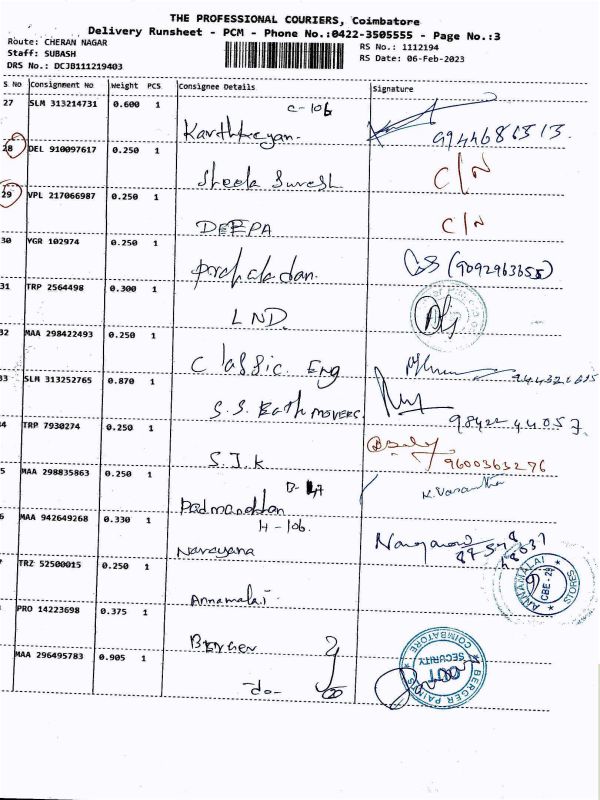 THE PROFESSIONAL COURIERS, Coimbatore
Delivery Runsheet - PCM - Phone No.:0422-3505555 - Page No.:3
Route: CHERAN NAGAR
RS No.: 1112194
Staff: SUBASH
RS Date: 06-Feb-2023
DRS No.: DCJB111219403
S No Consignment No Weight PCS Consignee Details Signature
27 SLM 313214731 0.600 1 C-106
Karthikeyan.
28 DEL 910097617 0.250 1
Sheela Suresh C/N
29 VPL 217066987 0.250 1
DEEPA C/N
30 VGR 102974 0.250 1
Prahaladan. (9092963655)
31 TRP 2564498 0.300 1
LND.
32 MAA 298422493 0.250 1
Classic. Eng
33 SLM 313252765 0.870 1
S.S. Earth MOVERS 98422 44057.
4 TRP 7930274 0.250 1
S.J.K 9600363276
5 MAA 298835863 0.250 1
Padmanabhan K. Vasantha
6 MAA 942649268 0.330 1 H-106.
Narayana
7 TRZ 52500015 0.250 1
Annamalai
ANNAMALAI STORES
PRO 14223698 0.375 1
BERGER
MAA 296495783 0.905 1
-do-
BERGER PAINTS COIMBATORE
SECURITY
OUT